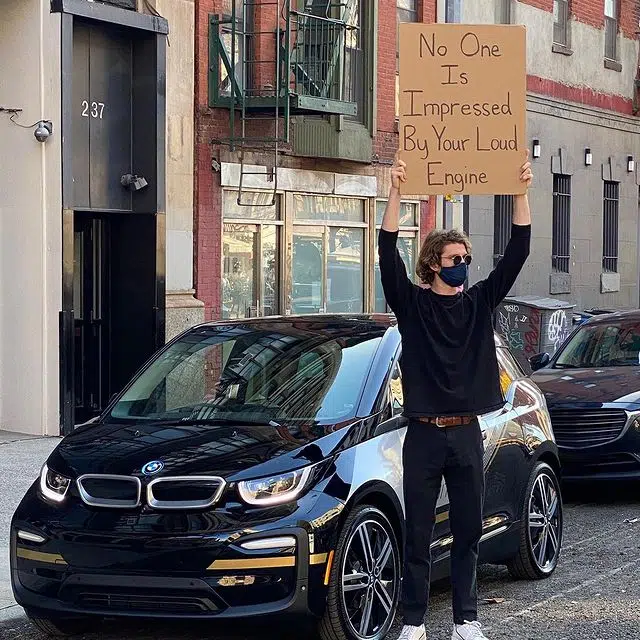 237
No One
Is
Impressed
By Your Loud
Engine